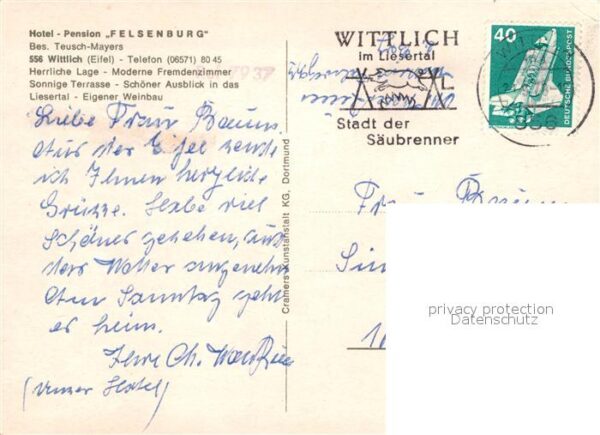 Hotel - Pension „FELSENBURG“
Bes. Teusch-Mayers
556 Wittlich (Eifel) - Telefon (06571) 80 45
Herrliche Lage - Moderne Fremdenzimmer
Sonnige Terrasse - Schöner Ausblick in das
Liesertal - Eigener Weinbau
Liebe Frau Braun
Aus der Eifel sende
ich Ihnen herzliche
Grüsse. Habe viel
schönes gesehen, auch
das Wetter angenehm
Am Sonntag geht
es heim.
Ihre Ch.
(Unser Hotel)
Cramers Kunstanstalt KG, Dortmund
WITTLICH
im Liesertal
Stadt der
Säubrenner
40
DEUTSCHE BUNDESPOST
Frau
privacy protection
Datenschutz